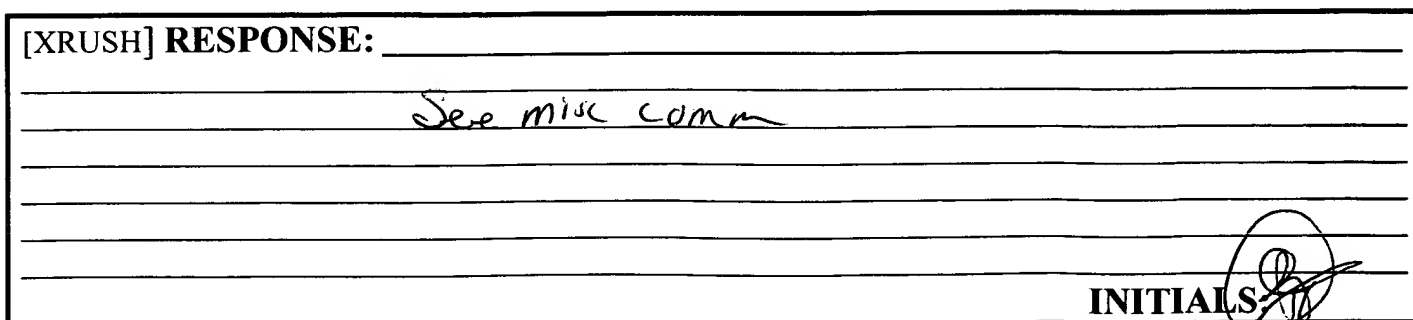 [XRUSH] RESPONSE:
See misc comm
INITIALS: